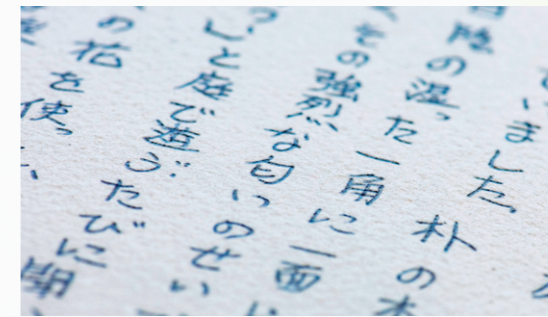 いました。朴の木
日陰の湿った一角に一面
その強烈な匂いのせい
っと庭で遊ぶたびに開
の花
を使っ